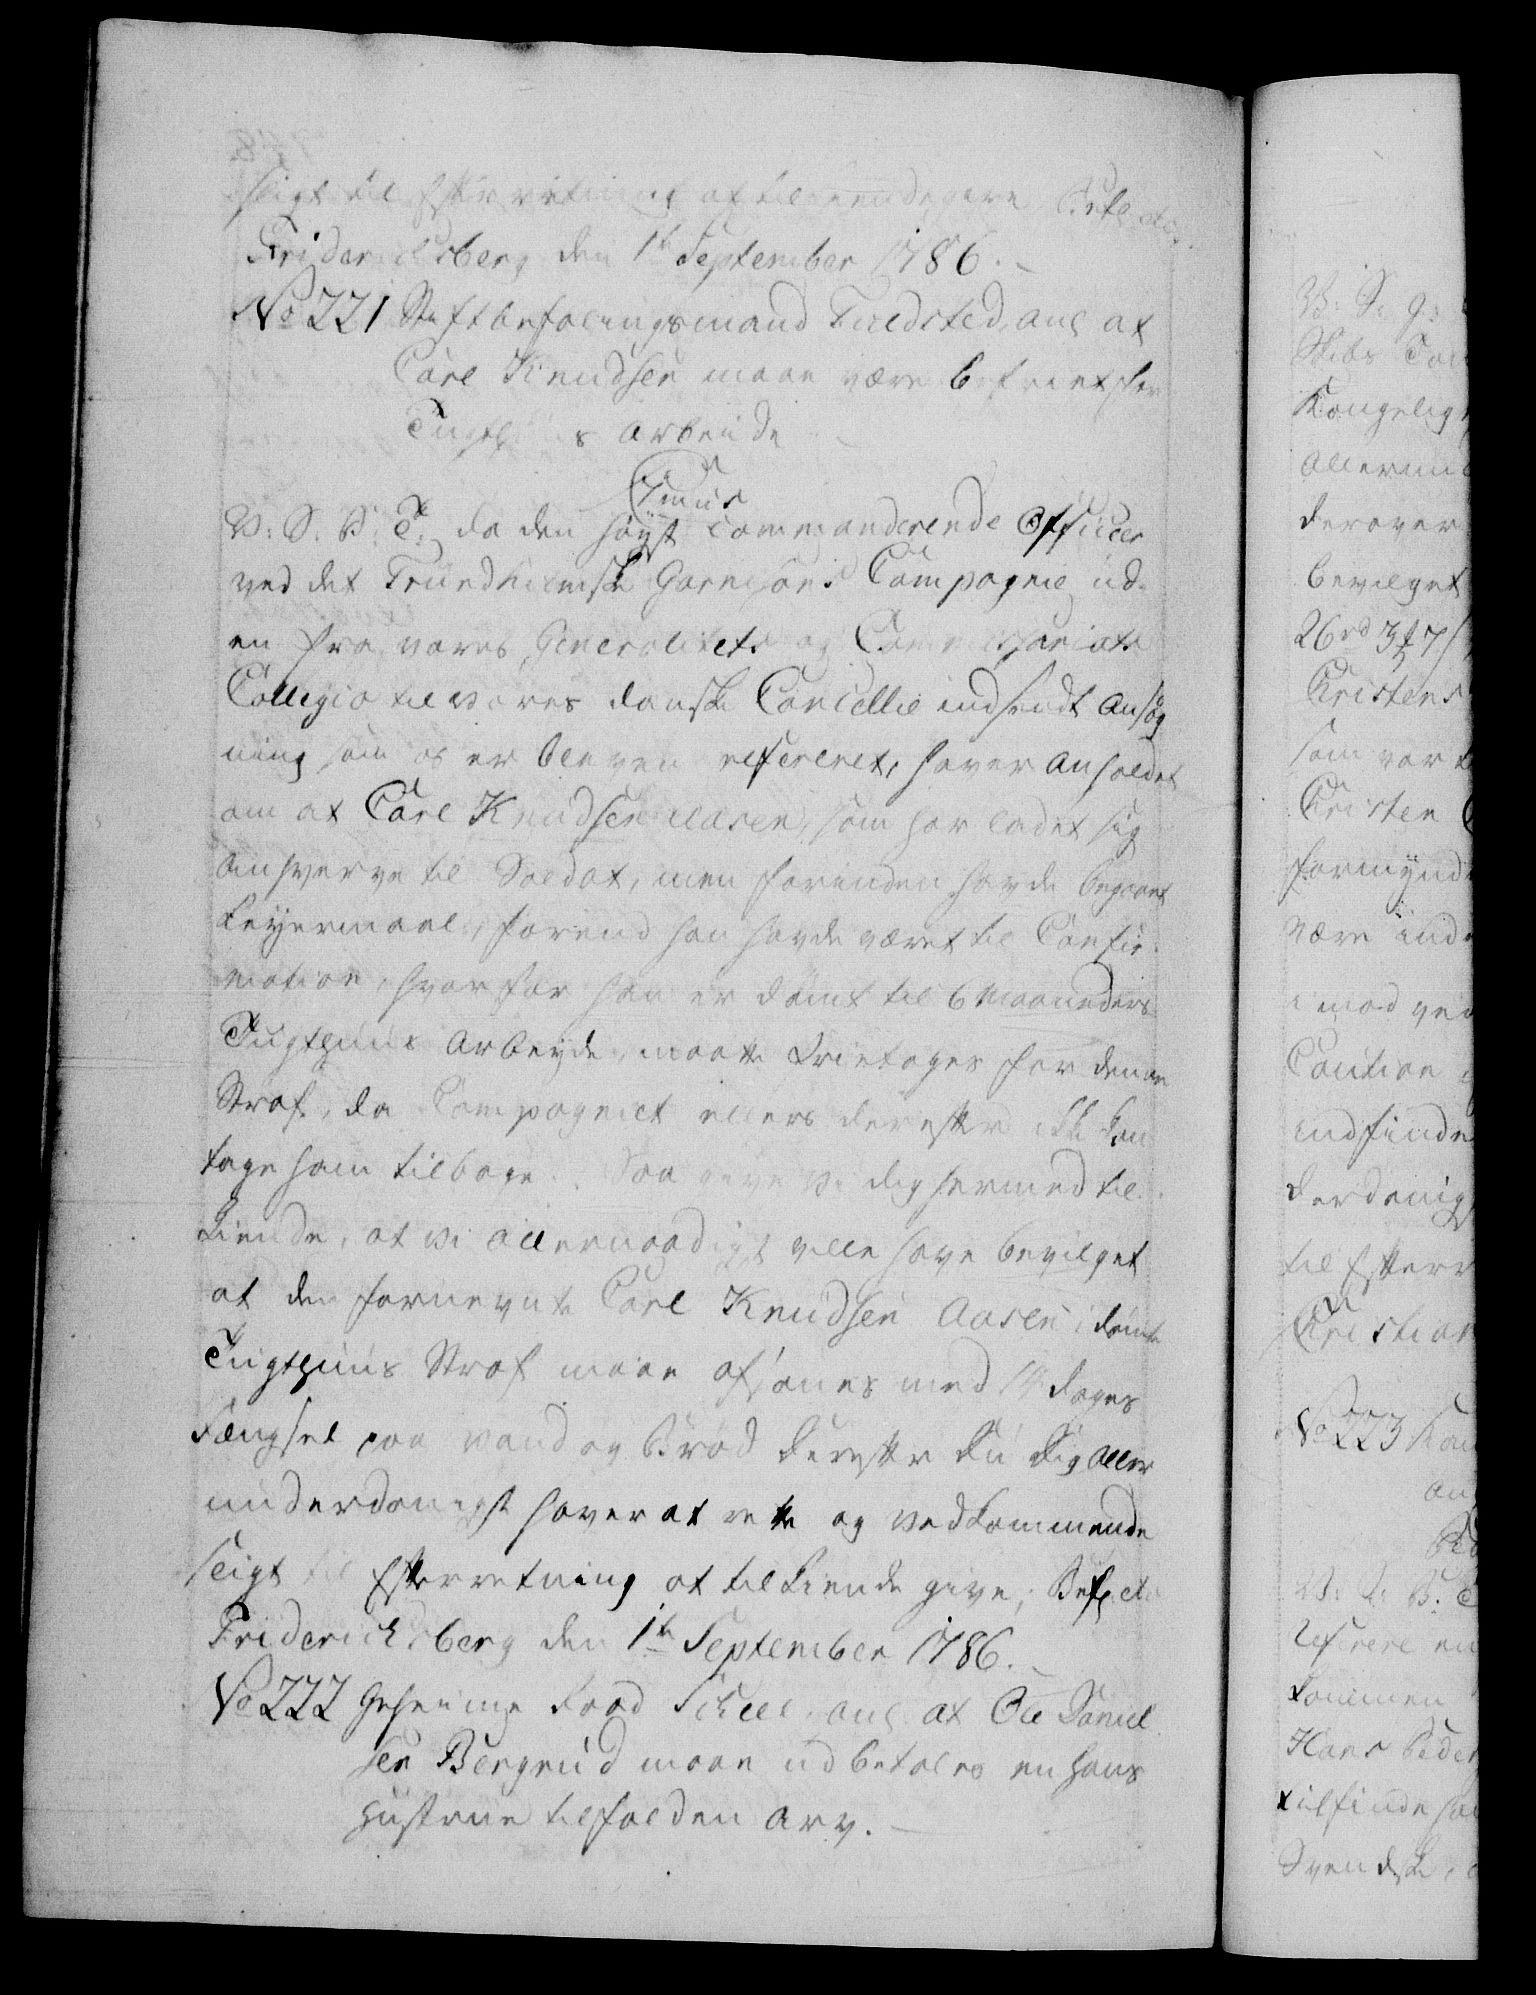 seigt til Efterretning at tilkiendegive. Befal etc.
Friderichsberg den 1te September 1786.
No 221 Stiftbefalingsmand Fieldsted, anl at
Carl Knudsen maae være befriet for
Tugthuus Arbeide
C 7mus
V: S. B: T: da den høyst commanderende Officer
ved det Trundhiemske Garnisons Compagnie, ud-
en fra vores Generalitets og Commissariats
Collegio til vores danske Cancellie indsendt Ansøg
ning som os er bleven refereret, haver anholdet
om at Carl Knudsen Aasen, som har ladet sig
anhverve til Soldat, men forinden havde begaaet
Leyermaal, forend han havde været til Confir-
mation, hvorfor han er dømt til 6 Maaneders
Tugthuus Arbeyde, maatte fritages for denne
Straf, da Compagniet ellers derefter ikke kan
tage ham tilbage. Saa give Vi dig hermed til
kiende, at Vi allernaadigst ville have bevilget
at den fornevnte Carl Knudsen Aasen idømte
Tugthuus Straf maae afsones med 14 dages
Fængsel paa Vand og Brød Derefter Du Dig aller
underdanigst haver at rette og Vedkommende
seigt til Efterretning at tilkiende give, Befal etc
Friderichsberg den 1te September 1786.
No 222 Geheime Raad Scheel, anl at Ole Daniel
sen Bergrud maae udbetales en hans
Hustrue tilfalden Arv.
V: S. G:
Skibs
Kongelig
Allerund
derover
bevilget
26 rd 3
Cristens
som var
Cristen
Formynd
være ind
imod ved
Caution
indfinde
derdanig
til Efterr
Cristian
No 223
V: S. B. T
referere
kommen
Hans Peder
tilfinde
Svendske,